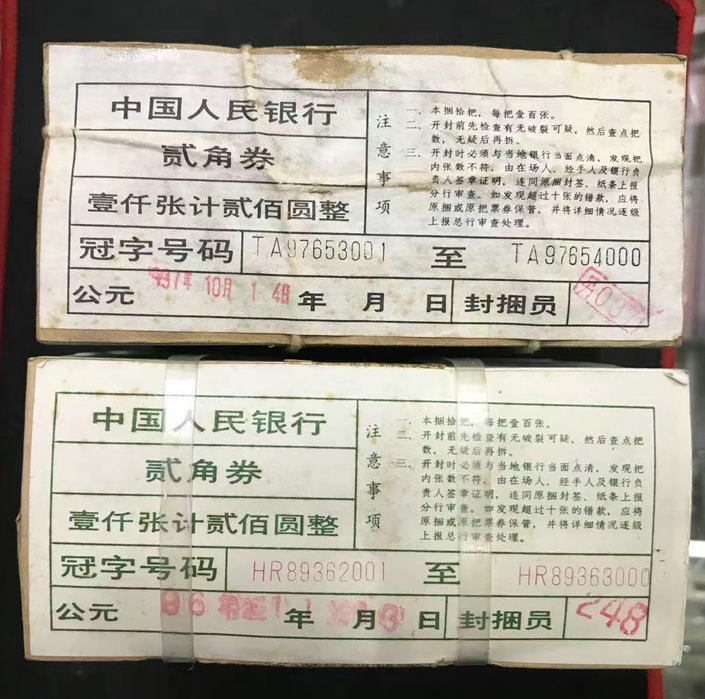 中国人民银行
贰角券
壹仟张计贰佰圆整
注意事项
一、本捆拾把，每把壹百张。
二、开封前先检查有无破裂可疑，然后查点把
数，无疑后再拆。
三、开封时必须与当地银行当面点清，发现把
内张数不符，由在场人、经手人及银行负
责人签章证明，连同原捆封签、纸条上报
分行审查。如发现超过十张的错款，应将
原捆或原把票券保管，并将详细情况逐级
上报总行审查处理。
冠字号码 TA97653001 至 TA97654000
公元 年 10月 14日 年 月 日 封捆员
中国人民银行
贰角券
壹仟张计贰佰圆整
注意事项
一、本捆拾把，每把壹百张。
二、开封前先检查有无破裂可疑，然后查点把
数，无疑后再拆。
三、开封时必须与当地银行当面点清，发现把
内张数不符，由在场人、经手人及银行负
责人签章证明，连同原捆封签、纸条上报
分行审查。如发现超过十张的错款，应将
原捆或原把票券保管，并将详细情况逐级
上报总行审查处理。
冠字号码 HR89362001 至 HR89363000
公元 年 月 日 封捆员 248